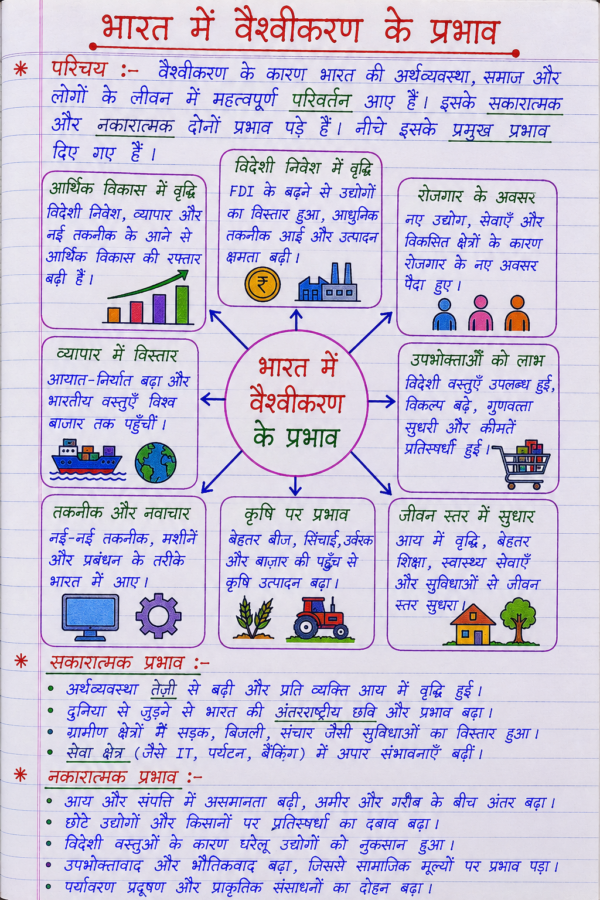 भारत में वैश्वीकरण के प्रभाव
* परिचय :- वैश्वीकरण के कारण भारत की अर्थव्यवस्था, समाज और
लोगों के लीवन में महत्वपूर्ण परिवर्तन आए हैं। इसके सकारात्मक
और नकारात्मक दोनों प्रभाव पड़े हैं। नीचे इसके प्रमुख प्रभाव
दिए गए हैं।
आर्थिक विकास में वृद्धि
विदेशी निवेश, व्यापार और
नई तकनीक के आने से
आर्थिक विकास की रफ्तार
बढ़ी है।
विदेशी निवेश में वृद्धि
FDI के बढ़ने से उद्योगों
का विस्तार हुआ, आधुनिक
तकनीक आई और उत्पादन
क्षमता बढ़ी।
₹
रोजगार के अवसर
नए उद्योग, सेवाएँ और
विकसित क्षेत्रों के कारण
रोजगार के नए अवसर
पैदा हुए।
व्यापार में विस्तार
आयात-निर्यात बढ़ा और
भारतीय वस्तुएँ विश्व
बाजार तक पहुँचीं।
भारत में
वैश्वीकरण
के प्रभाव
उपभोक्ताओं को लाभ
विदेशी वस्तुएँ उपलब्ध हुई,
विकल्प बढ़े, गुणवत्ता
सुधरी और कीमतें
प्रतिस्पर्धी हुई।
तकनीक और नवाचार
नई-नई तकनीक, मशीनें
और प्रबंधन के तरीके
भारत में आए।
कृषि पर प्रभाव
बेहतर बीज, सिंचाई, उर्वरक
और बाज़ार की पहुँच से
कृषि उत्पादन बढ़ा।
जीवन स्तर में सुधार
आय में वृद्धि, बेहतर
शिक्षा, स्वास्थ्य सेवाएँ
और सुविधाओं से जीवन
स्तर सुधरा।
* सकारात्मक प्रभाव :-
• अर्थव्यवस्था तेज़ी से बढ़ी और प्रति व्यक्ति आय में वृद्धि हुई।
• दुनिया से जुड़ने से भारत की अंतरराष्ट्रीय छवि और प्रभाव बढ़ा।
• ग्रामीण क्षेत्रों में सड़क, बिजली, संचार जैसी सुविधाओं का विस्तार हुआ।
• सेवा क्षेत्र (जैसे IT, पर्यटन, बैंकिंग) में अपार संभावनाएँ बढ़ीं।
* नकारात्मक प्रभाव :-
• आय और संपत्ति में असमानता बढ़ी, अमीर और गरीब के बीच अंतर बढ़ा।
• छोटे उद्योगों और किसानों पर प्रतिस्पर्धा का दबाव बढ़ा।
• विदेशी वस्तुओं के कारण घरेलू उद्योगों को नुकसान हुआ।
• उपभोक्तावाद और भौतिकवाद बढ़ा, जिससे सामाजिक मूल्यों पर प्रभाव पड़ा।
• पर्यावरण प्रदूषण और प्राकृतिक संसाधनों का दोहन बढ़ा।